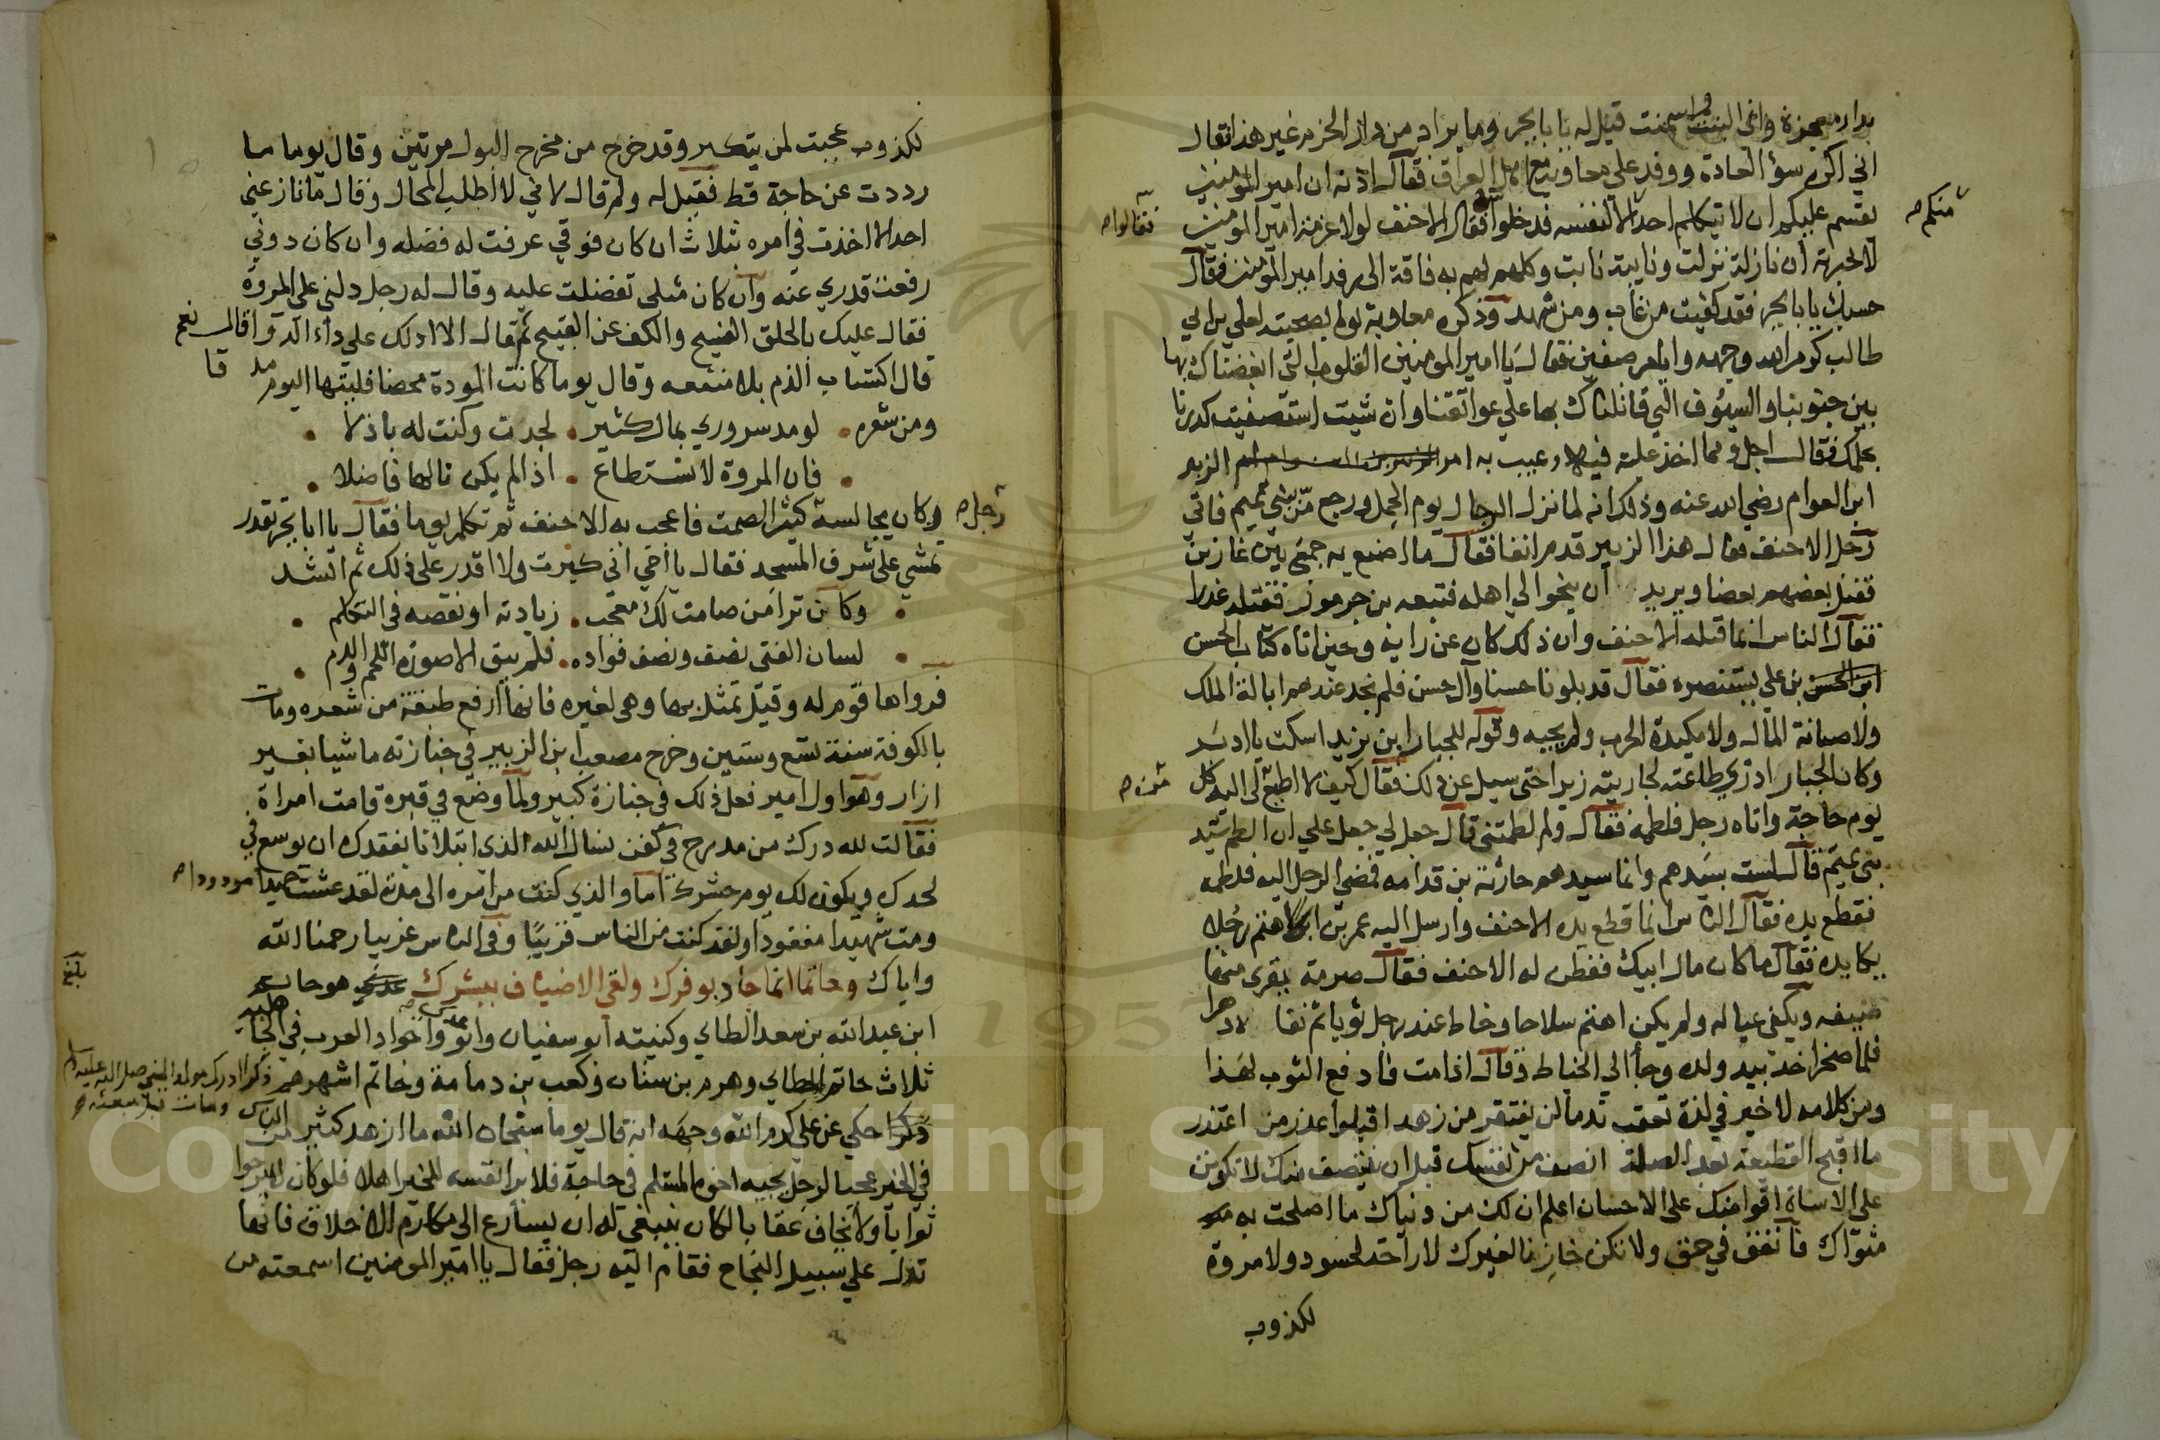 بدار معجزة واغي البنت فراسمنت قيل له يا بابحر وما يراد من دار الحزم غير هذا فقال
اني اكره سؤ العادة ووفد علي معاوية مع اهل العراق فقال اذنه ان امير المومنين
يقسم عليكم ان لا يتكلم احد الا لنفسه فدخلوا فقال الاحنف لولا عزمة امير المومنين
منكم صح
فقالوا صح
لاخبرته ان نازلة نزلت ونايبة نابت وكلهم لهم به فاقة الي رفد امير المومنين فقال
حسبك يا بابحر فقد كفيت من غاب ومن شهد وذكره معاوية يوما بصحبته لعلي بن ابي
طالب كرم الله وجهه وايام صفين فقال يا امير المومنين القلوب التي ابغضناك بها
بين جنوبنا والسيوف التي قاتلناك بها علي عواتقنا وان شيت استصفيت كدرنا
بحلمك فقال اجل ومما اخذ عليه فيه وعيب به امر الزبير
ابن العوام رضي الله عنه وذلك انه لما نزل الرجال يوم الجمل ورجع من بني تميم فاتي
رجل الاحنف فقال هذا الزبير قد مر انفا فقال ما اصنع به جمع بين غازين
فقتل بعضهم بعضا ويريد ان ينجوا الي اهله فتبعه بن جرموز فقتله غدرا
فقال الناس انما قتله الاحنف وان ذلك كان عن رايه وحين اتاه كتاب الحسن
ابن الحسن بن علي يستنصره فقال قد بلونا حسنا وال حسن فلم نجد عندهم ايالة الملك
ولا صيانة المال ولا مكيدة الحرب ولم يجبه وقوله للجبار ابن يزيد اسكت يا ادسد
وكان الجبار ادري طاعته لجاريته زبرا حتي سيل عن ذلك فقال كيف لا اطيع لي اليه كل
يوم حاجة واتاه رجل فلطمه فقال ولم لطمتني قال جعل لي جعل علي ان الطم سيد
بني تميم فقال لست بسيدهم وانما سيدهم حارثة بن قدامه فمضي الرجل اليه فلطمه
فقطع يده فقال الناس انما قطع يده الاحنف وارسل اليه عمر بن الاهتم رجلا
يكايده فقال ما كان مال ابيك ففطن له الاحنف فقال صرمة يقري منها
ضيفه ويكفي عياله ولم يكن اهتم سلاحا وخاط عند رجل ثوبا ثم تقا لادهرا
فلما ضخرا خذ بيد ولده وجا الي الخياط وقال اذا مت فادفع الثوب لهذا
ومن كلامه لا خير في لذة تعقب ندما لن يفتقر من زهد اقبلوا عذر من اعتذر
ما اقبح القطيعة بعد الصلة انصف من نفسك قبل ان ينتصف منك لا تكونن
علي الاساة اقوا منك علي الاحسان اعلم ان لك من دنياك ما اصلحت به
مثواك فانفق في حق ولا تكن خازنا لغيرك لا راحة لحسود ولا مروة
لكذوب
لكذوب عجبت لمن يتكبر وقد خرج من مخرج البول مرتين وقال يوما ما
رددت عن حاجة قط فقيل له ولم قال لاني لا اطلب المحال وقال ما نازعني
احد الا اخذت في امره بثلاث ان كان فوقي عرفت له فضله وان كان دوني
رفعت قدري عنه وان كان مثلي تفضلت عليه وقال له رجل دلني علي المروة
فقال عليك بالخلق الفسيح والكف عن القبيح ثم قال الا ادلك علي داء الدوا قال نعم
قال اكتساب الذم بلا منفعه وقال يوما كانت المودة محضا فليتها اليوم مذقا
ومن شعره لو مد سروري بمال كثير لجدت وكنت له باذلا
فان المروة لا تستطاع اذا لم يكن مالها فاضلا
وكان يجالسه كثير الصمت فاعجب به الاحنف ثم تكلم يوما فقال يا ابا بحر تقدر
رجل صح
تمشي علي شرف المسجد فقال يا اخي اني كبرت ولا اقدر علي ذلك ثم انشد
وكاين ترا من صامت لك معجب زيادته او نقصه في التكلم
لسان الفتي نصف ونصف فواده فلم يبق الا صورة اللحم والدم
فرواها قوم له وقيل تمثل بها وهي لغيره فانها ارفع طبقة من شعره ومات
بالكوفة سنة تسع وستين وخرج مصعب ابن الزبير في جنازته ماشيا بغير
ازار وهو اول امير فعل ذلك في جنازة كبير ولما وضع في قبره قامت امراة
فقالت لله درك من مدرج في كفن نسال الله الذي ابتلانا بفقدك ان يوسع في
لحدك ويكون لك يوم حشرك اما والذي كنت من امره الي مدة لقد عشت حميدا
مودودا صح
ومت شهيدا مفقودا ولقد كنت من الناس قريبا وفي الناس غريبا رحمنا الله
واياك وحاتما انما جاد بوفرك ولقي الاضياف ببشرك هو حاتم
بلغ
ابن عبد الله بن سعد الطاي وكنيته ابو سفيان وابو عدي واجواد العرب في الجاهلية
ثلاث حاتم الطاي وهرم بن سنان وكعب بن دمامة وحاتم اشهرهم ذكرا
ادرك مولد النبي صلي الله عليه وسلم ومات قبل مبعثه صح
ذكرا حكي عن علي كرم الله وجهه انه قال يوما سبحان الله ما ازهد كثير من الناس
في الخير عجبا لرجل يجيه اخوه المسلم في حاجة فلا ير نفسه للخير اهلا فلو كان لا يرجوا
ثوابا ولا يخاف عقابا لكان ينبغي له ان يسارع الي مكارم الاخلاق فانها
تدل علي سبيل النجاح فقام اليه رجل فقال يا امير المومنين اسمعته من
Copyright © King Saud University
1957